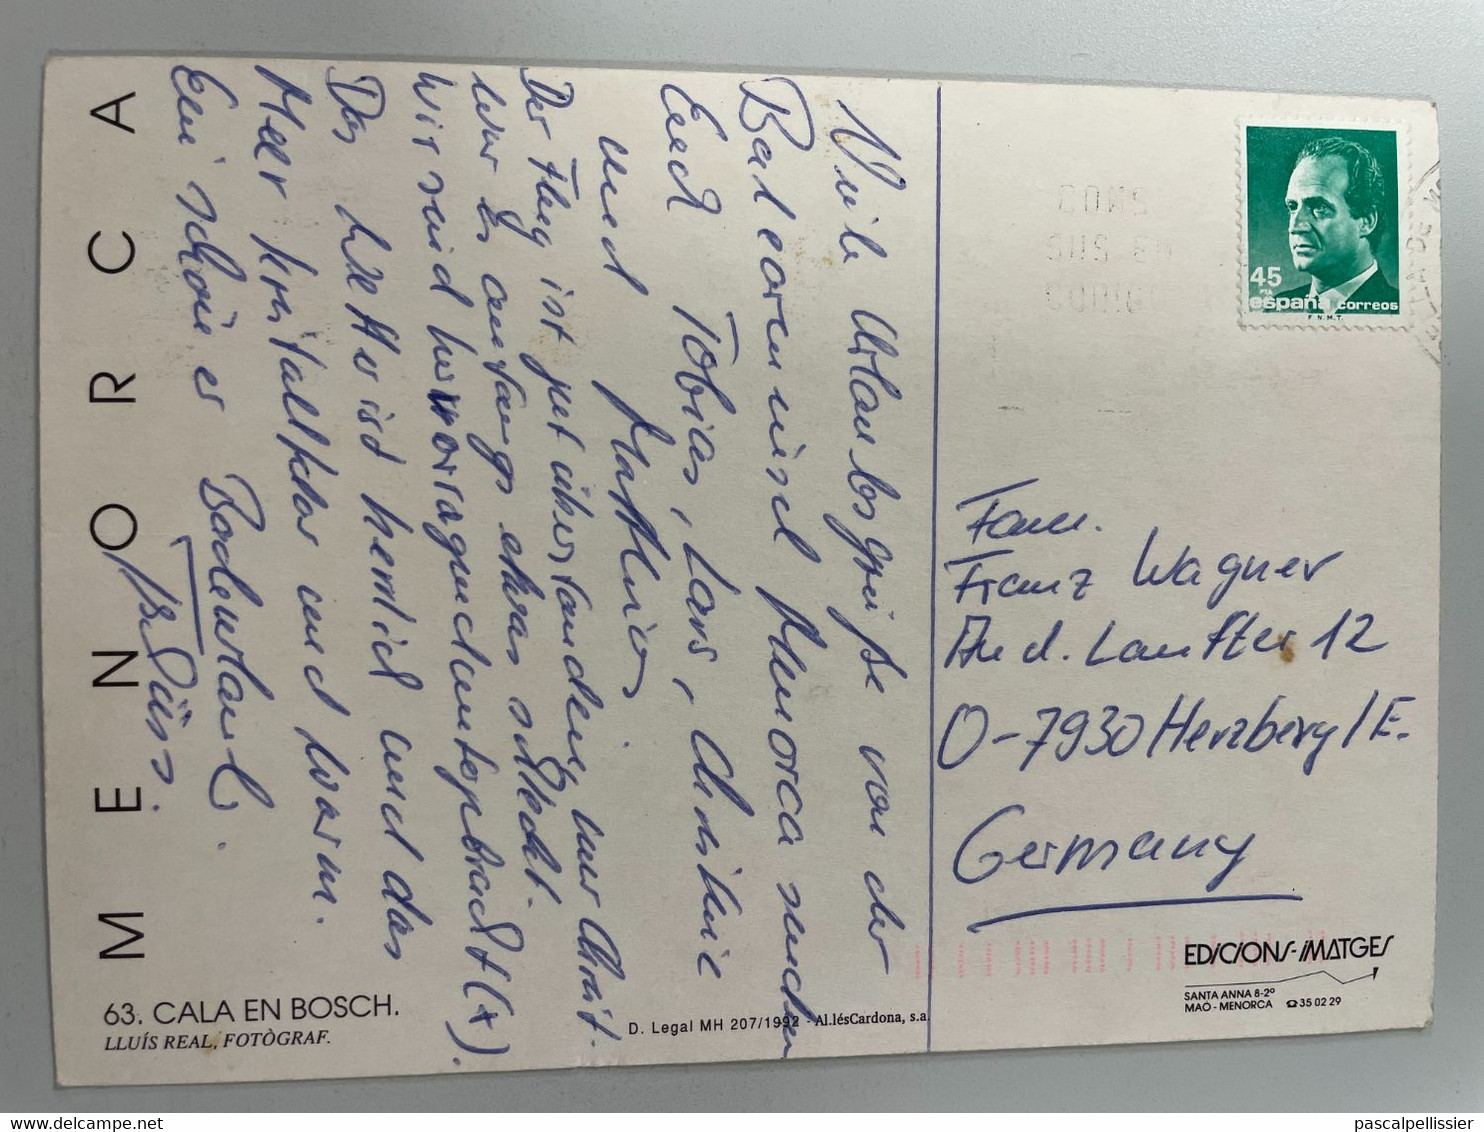 MENORCA
Viele Urlaubsgrüße von der
Baleareninsel Menorca senden
Euch Tobias, Lars, Christine
und Matthias.
Der Flug ist gut überstanden, nur Christ.
war es anfangs etwas schlecht.
Wir sind hervorragend untergebracht (4).
Das Wetter ist herrlich und das
Meer kristallklar und warm.
Ein schöner Badeurlaub.
Tschüss.
63. CALA EN BOSCH.
LLUÍS REAL, FOTÒGRAF.
D. Legal MH 207/1992 - Al.lésCardona, s.a.
45
PTA
españa correos
F.N.M.T.
Fam.
Franz Wagner
And. Lauffter 12
O-7930 Herzberg/E.
Germany
EDICIONS-IMATGES
SANTA ANNA 8-2º
MAÓ - MENORCA ☎ 35 02 29
pascalpellissier